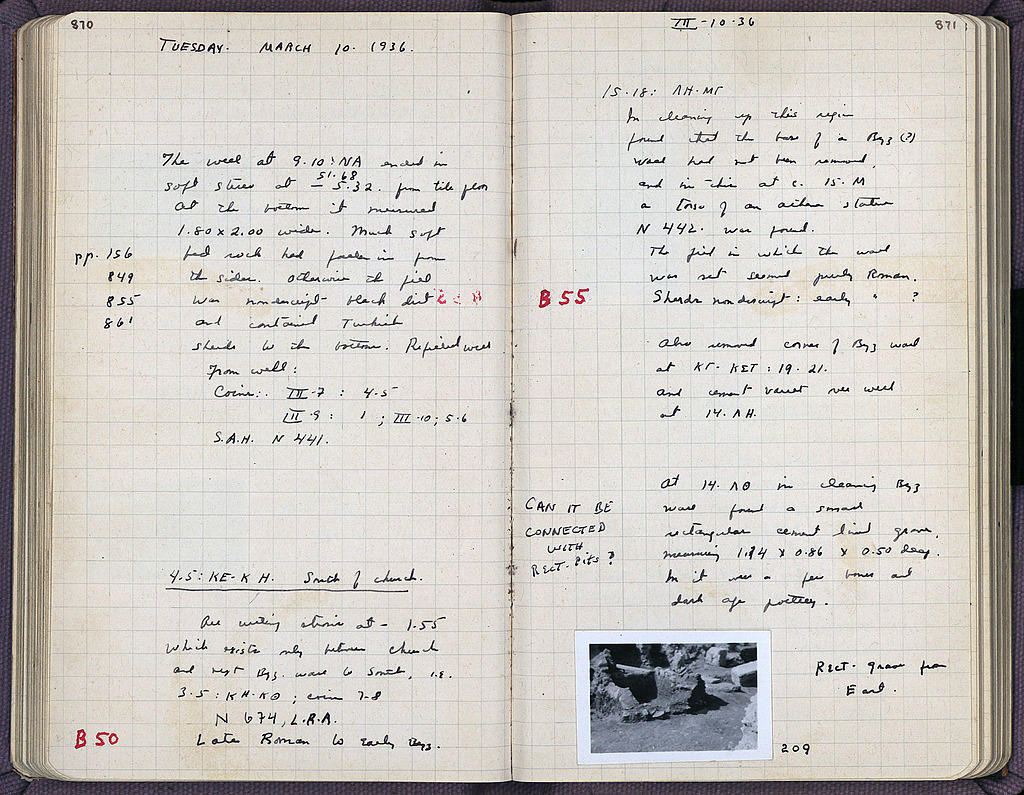 870
TUESDAY. MARCH 10. 1936.
The well at 9.10:NA ended in
51.68
soft stereo at – 5.32. from tile floor
At the bottom it measured
1.80 x 2.00 wide. Much soft
pp. 156
bed rock had fallen in from
849
the sides. Otherwise the fill
855
was nondescript black dirt
861
and contained Turkish
sherds to the bottom. Refilled well
From well:
Coins: III-7 : 4-5
III-9 : 1 ; III-10; 5-6
S.A.H. N 441.
4.5: KE-KH. South of church.
strosis at - 1.55
which exists only between church
and next Byz. wall to South, i.e.
3-5: KH-KΘ ; coin 7-8
N 674, L.R.A.
B 50
Late Roman to early Byz.
III-10-36
871
15-18: ΛH-MΓ
In cleaning up this region
found that the base of a Byz (?)
wall had not been removed,
and in this at c. 15. M
a torso of an statue
N 442. was found.
The fill in which the wall
was set seemed purely Roman.
B 55
Sherds nondescript: early " ?
Also removed corner of Byz wall
at KΓ- KΣΤ: 19-21.
and cement over well
at 14. ΛH.
At 14. ΛΘ in cleaning Byz
wall found a small
rectangular cement lined grave,
measuring 1.14 x 0.86 x 0.50 deep.
In it were a few bones and
dark age pottery.
CAN IT BE
CONNECTED
WITH
RECT. PITS?
Rect. grave from
East.
209